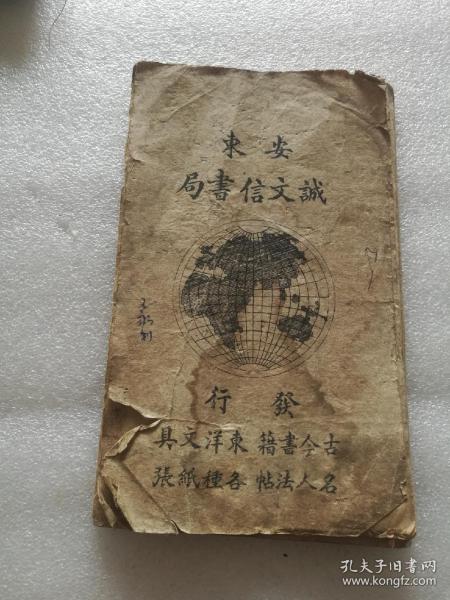 安東
誠文信書局
發行
古今書籍 東洋文具
名人法帖 各種紙張
孔夫子旧书网
www.kongfz.com